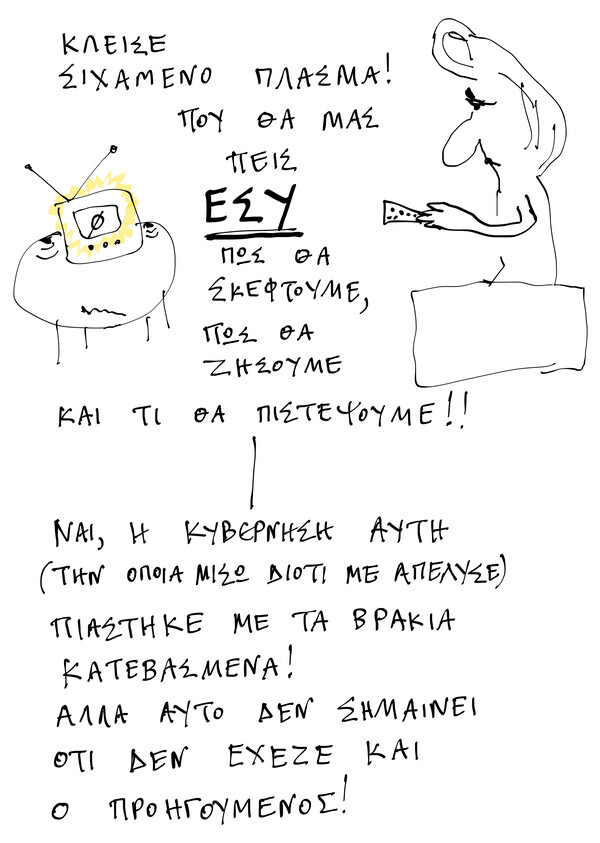 ΚΛΕΙΣΕ
ΣΙΧΑΜΕΝΟ ΠΛΑΣΜΑ!
ΠΟΥ ΘΑ ΜΑΣ
ΠΕΙΣ
ΕΣΥ
ΠΩΣ ΘΑ
ΣΚΕΦΤΟΥΜΕ,
ΠΩΣ ΘΑ
ΖΗΣΟΥΜΕ
ΚΑΙ ΤΙ ΘΑ ΠΙΣΤΕΨΟΥΜΕ!!
ΝΑΙ, Η ΚΥΒΕΡΝΗΣΗ ΑΥΤΗ
(ΤΗΝ ΟΠΟΙΑ ΜΙΣΩ ΔΙΟΤΙ ΜΕ ΑΠΕΛΥΣΕ)
ΠΙΑΣΤΗΚΕ ΜΕ ΤΑ ΒΡΑΚΙΑ
ΚΑΤΕΒΑΣΜΕΝΑ!
ΑΛΛΑ ΑΥΤΟ ΔΕΝ ΣΗΜΑΙΝΕΙ
ΟΤΙ ΔΕΝ ΕΧΕΖΕ ΚΑΙ
Ο ΠΡΟΗΓΟΥΜΕΝΟΣ!